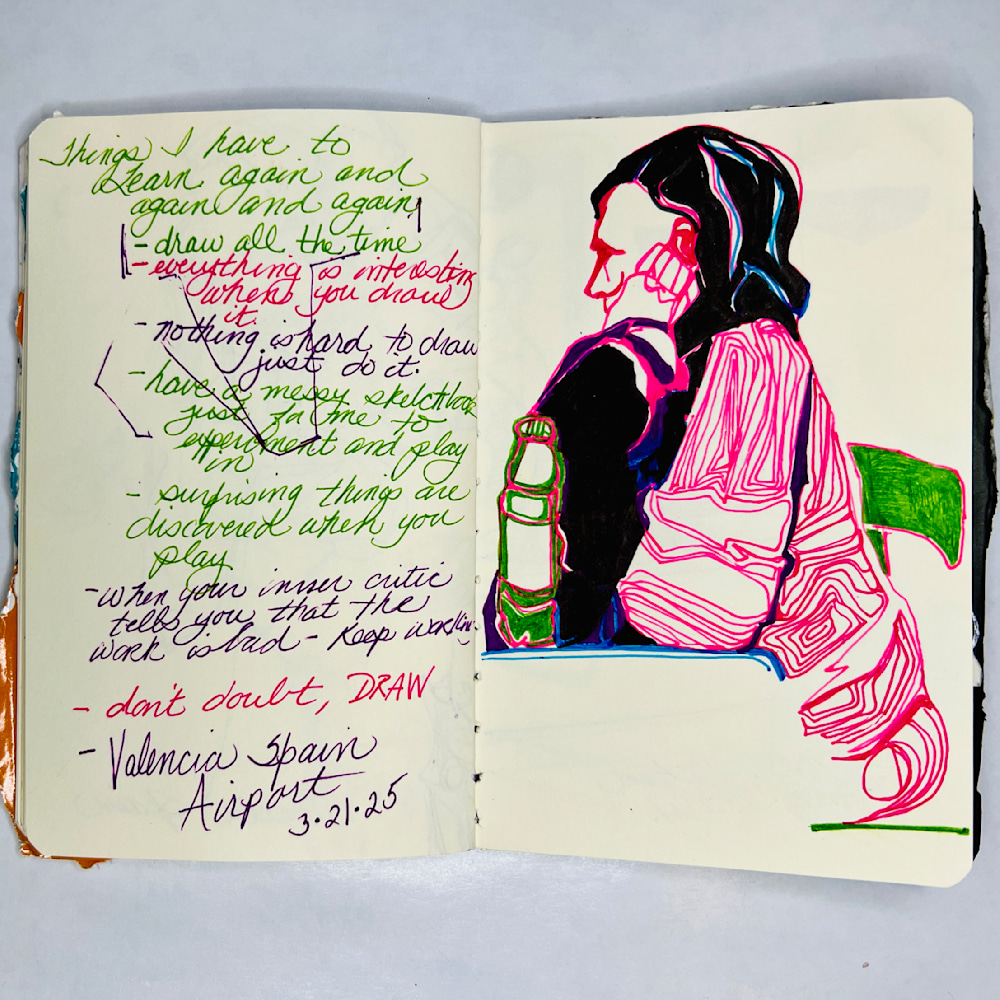 Things I have to
Learn again and
again and again
- draw all the time
- everything is interesting
when you draw
it.
- nothing is hard to draw
just do it.
- have a messy sketchbook
just for me to
experiment and play
in
- surprising things are
discovered when you
play
- when your inner critic
tells you that the
work is bad - Keep working
- don't doubt, DRAW
- Valencia Spain
Airport
3.21.25